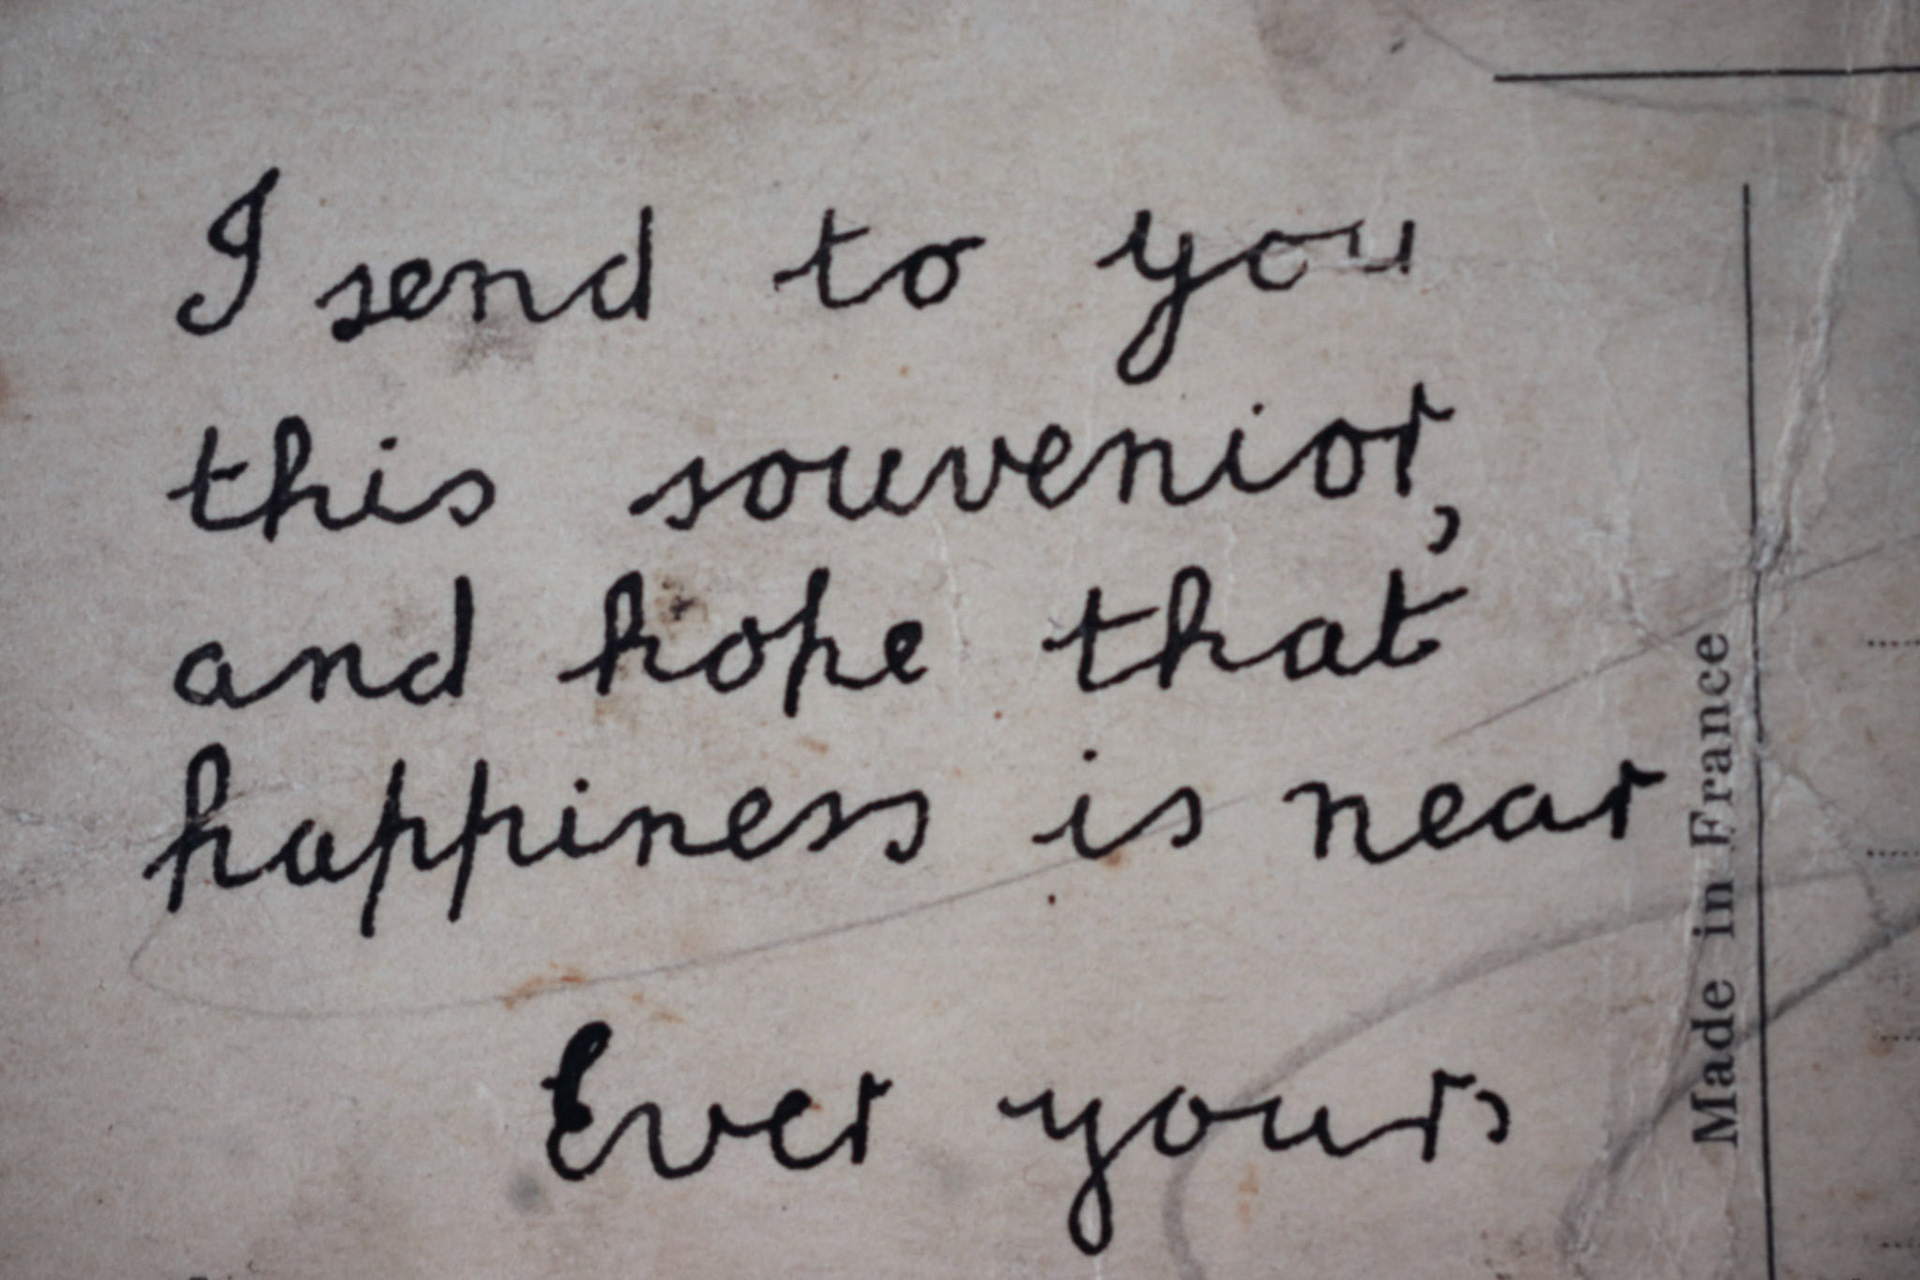 I send to you
this souvenior,
and hope that
happiness is near
Ever yours
Made in France